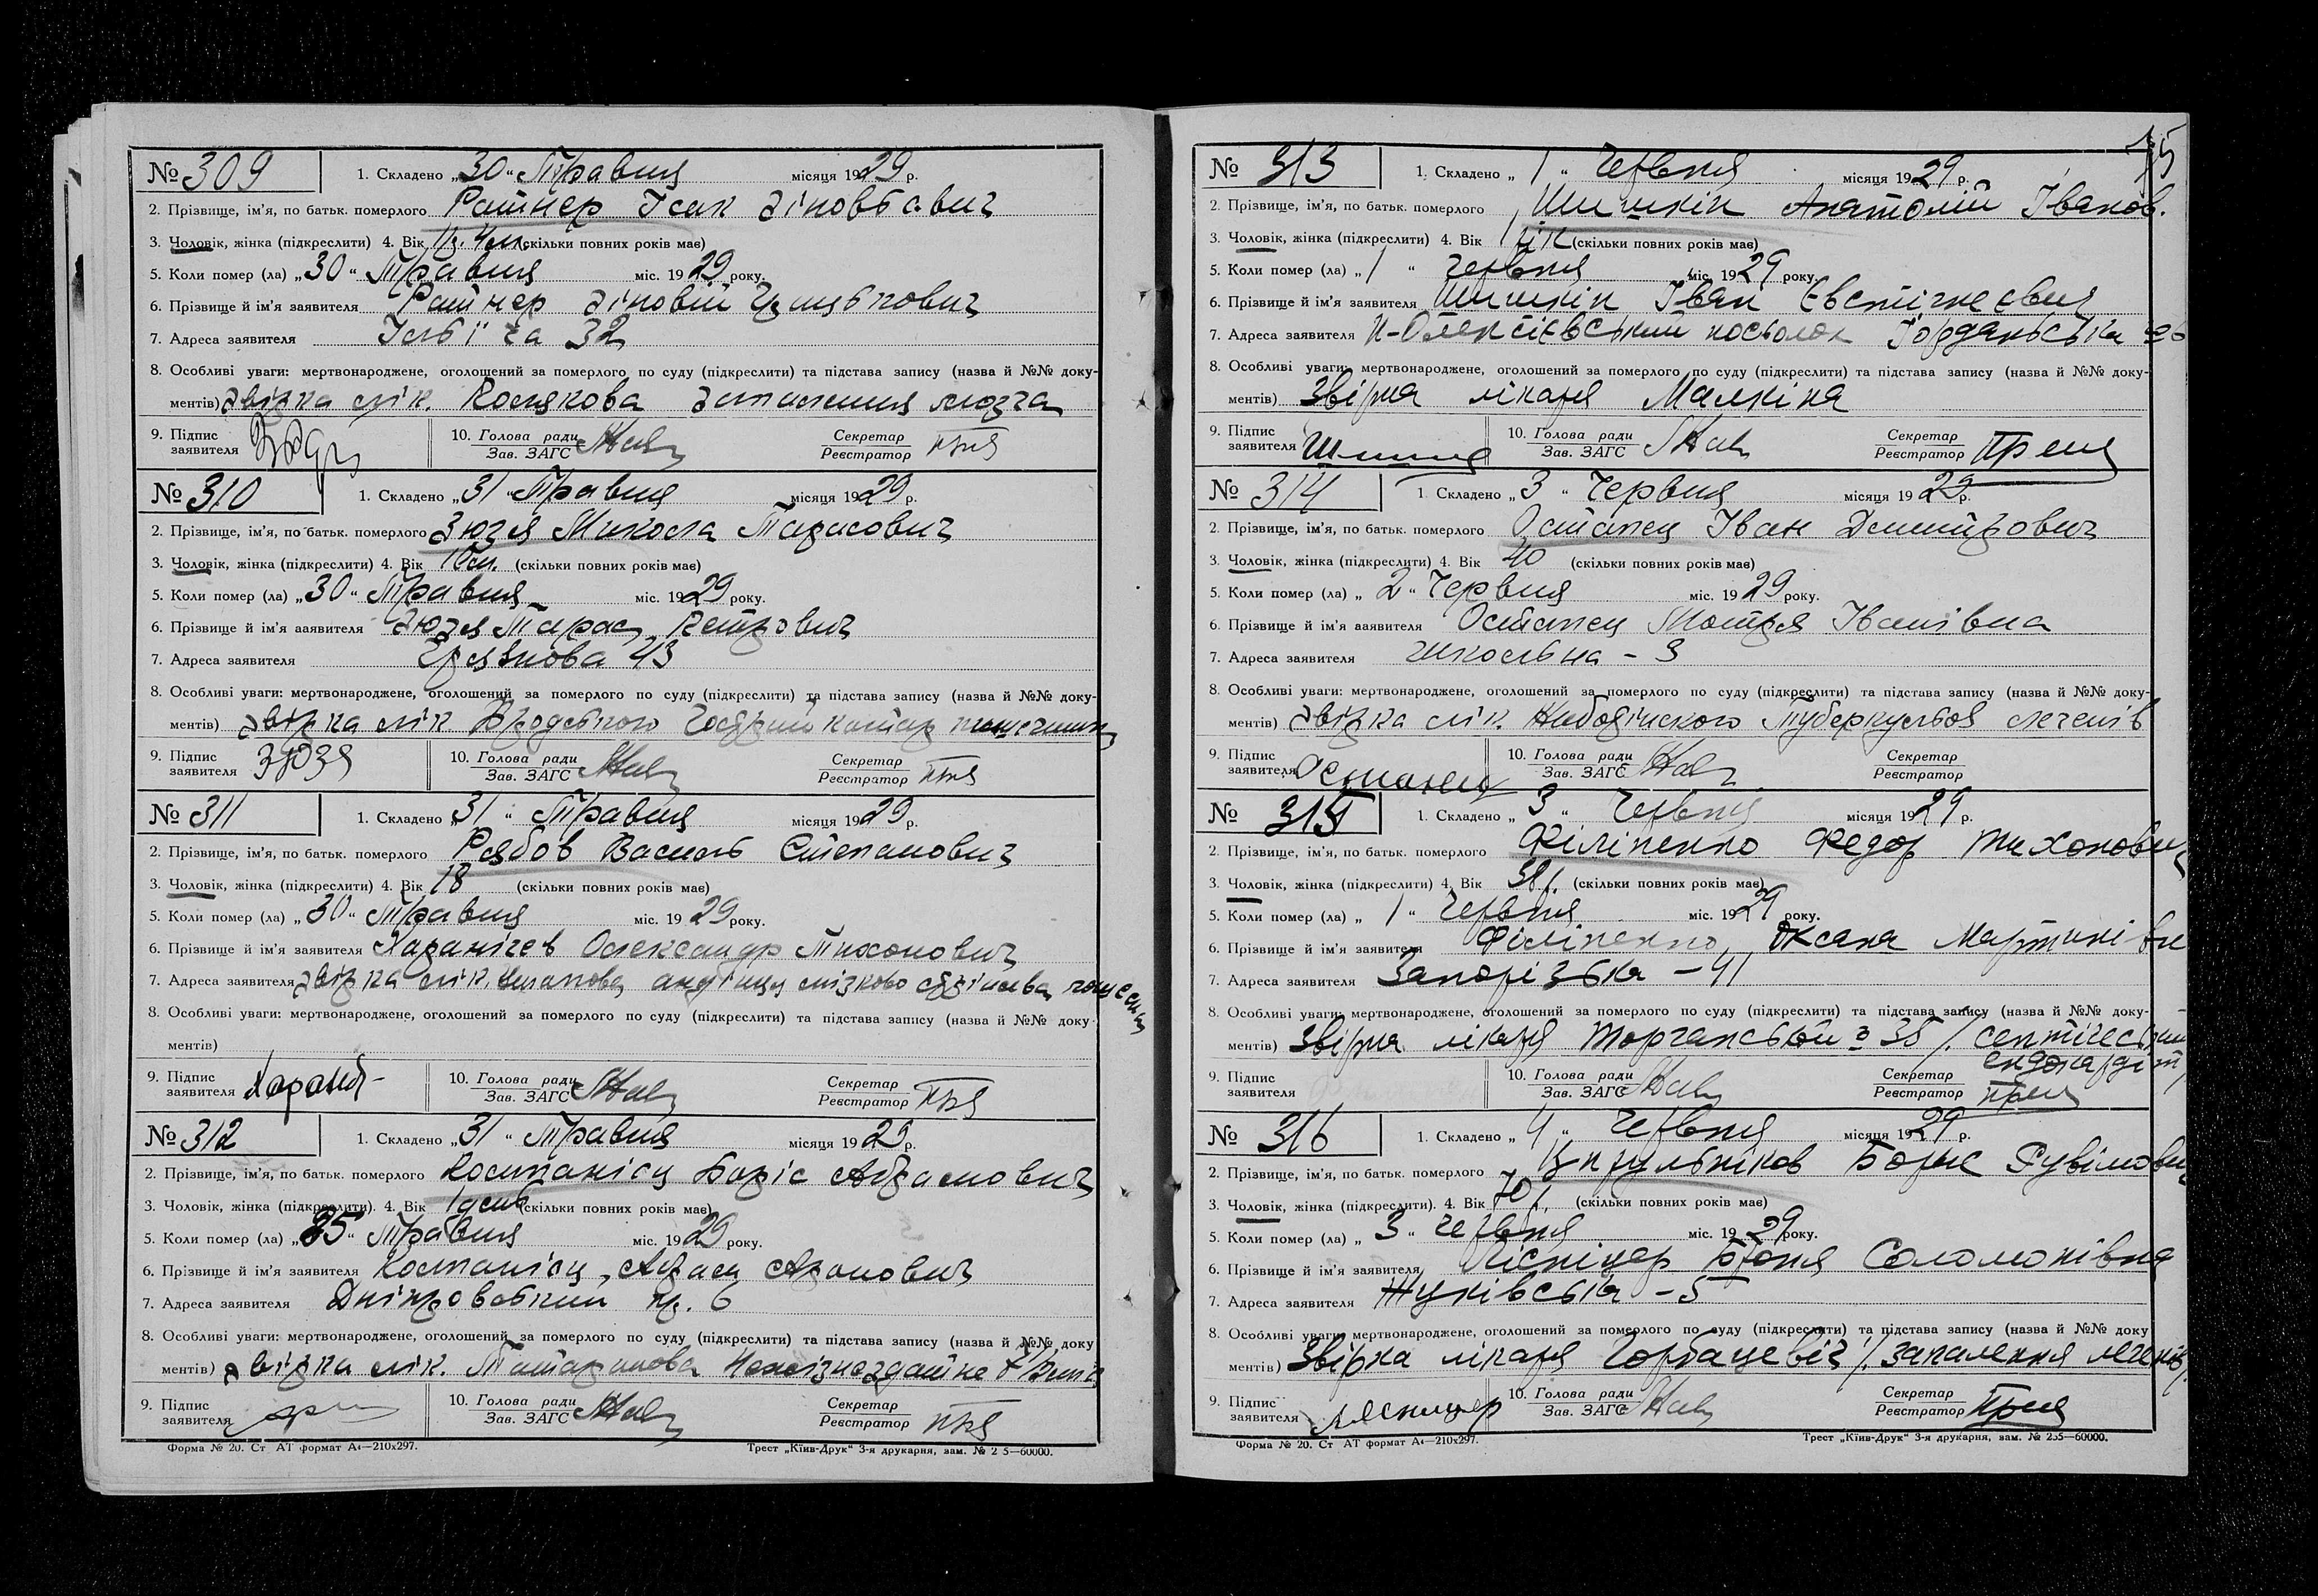 № 309 1. Складено „30“ Травня місяця 1929 р.
2. Прізвище, ім'я, по батьк. померлого Райнер Ісак Зіновьевич
3. Чоловік, жінка (підкреслити) 4. Вік 1 р. 4 м. (скільки повних років має)
5. Коли помер (ла) „30“ Травня міс. 1929 року.
6. Прізвище й ім'я заявителя Райнер Зіновій
7. Адреса заявителя Ілліча 32
8. Особливі уваги: мертвонароджене, оголошений за померлого по суду (підкреслити) та підстава запису (назва й №№ доку-
ментів) Звірка лік. Колякова Запалення мозга
9. Підпис заявителя 10. Голова ради Зав. ЗАГС Секретар Реєстратор
№ 310 1. Складено „31“ Травня місяця 1929 р.
2. Прізвище, ім'я, по батьк. померлого Зюзя Микола Тарасович
3. Чоловік, жінка (підкреслити) 4. Вік 10 м. (скільки повних років має)
5. Коли помер (ла) „30“ Травня міс. 1929 року.
6. Прізвище й ім'я заявителя Зюзя Тарас Петрович
7. Адреса заявителя 43
8. Особливі уваги: мертвонароджене, оголошений за померлого по суду (підкреслити) та підстава запису (назва й №№ доку-
ментів) Звірка лік. Гострий катар
9. Підпис заявителя Зюзя 10. Голова ради Зав. ЗАГС Секретар Реєстратор
№ 311 1. Складено „31“ Травня місяця 1929 р.
2. Прізвище, ім'я, по батьк. померлого Рябов Василь Степанович
3. Чоловік, жінка (підкреслити) 4. Вік 18 (скільки повних років має)
5. Коли помер (ла) „30“ Травня міс. 1929 року.
6. Прізвище й ім'я заявителя Харанічев Олександр Тихонович
7. Адреса заявителя Звірка лік.
8. Особливі уваги: мертвонароджене, оголошений за померлого по суду (підкреслити) та підстава запису (назва й №№ доку
ментів)
9. Підпис заявителя 10. Голова ради Зав. ЗАГС Секретар Реєстратор
№ 312 1. Складено „31“ Травня місяця 1929 р.
2. Прізвище, ім'я, по батьк. померлого Компанієц Боріс Абрамович
3. Чоловік, жінка (підкреслити). 4. Вік 1 день (скільки повних років має)
5. Коли помер (ла) „25“ Травня міс. 1929 року.
6. Прізвище й ім'я заявителя Компанієц Абрам Аронович
7. Адреса заявителя Дніпровський пр. 6
8. Особливі уваги: мертвонароджене, оголошений за померлого по суду (підкреслити) та підстава запису (назва й №№ доку
ментів) Звірка лік. Татаринова
9. Підпис заявителя 10. Голова ради Зав. ЗАГС Секретар Реєстратор
Форма № 20. Ст АТ формат А4—210х297. Трест „Київ-Друк“ 3-я друкарня, зам. № 2 5—60000.
№ 313 1. Складено „1“ Червня місяця 1929 р.
2. Прізвище, ім'я, по батьк. померлого Шишкін Анатолій Іванов.
3. Чоловік, жінка (підкреслити) 4. Вік 1 рік (скільки повних років має)
5. Коли помер (ла) „1“ Червня міс. 1929 року.
6. Прізвище й ім'я заявителя Шишкін Іван Євстігнеєвич
7. Адреса заявителя Н-Олексієвський посьолок
8. Особливі уваги: мертвонароджене, оголошений за померлого по суду (підкреслити) та підстава запису (назва й №№ доку-
ментів) Звірка лікаря Малкіна
9. Підпис заявителя 10. Голова ради Зав. ЗАГС Секретар Реєстратор
№ 314 1. Складено „3“ Червня місяця 1929 р.
2. Прізвище, ім'я, по батьк. померлого Остапец Іван Дмитрович
3. Чоловік, жінка (підкреслити) 4. Вік 40 (скільки повних років має)
5. Коли помер (ла) „2“ Червня міс. 1929 року.
6. Прізвище й ім'я заявителя Остапец Мотря Іванівна
7. Адреса заявителя Школьна - 3
8. Особливі уваги: мертвонароджене, оголошений за померлого по суду (підкреслити) та підстава запису (назва й №№ доку-
ментів) Звірка лік. Туберкульоз легенів
9. Підпис заявителя Остапец 10. Голова ради Зав. ЗАГС Секретар Реєстратор
№ 315 1. Складено „3“ Червня місяця 1929 р.
2. Прізвище, ім'я, по батьк. померлого Філіпенко Федор Тихонович
3. Чоловік, жінка (підкреслити) 4. Вік 38 р. (скільки повних років має)
5. Коли помер (ла) „1“ Червня міс. 1929 року.
6. Прізвище й ім'я заявителя Філіпенко, Оксана Мартинівн
7. Адреса заявителя Запорізька - 41
8. Особливі уваги: мертвонароджене, оголошений за померлого по суду (підкреслити) та підстава запису (назва й №№ доку-
ментів) Звірка лікаря септіческий
ендокардіт
9. Підпис заявителя 10. Голова ради Зав. ЗАГС Секретар Реєстратор
№ 316 1. Складено „4“ Червня місяця 1929 р.
2. Прізвище, ім'я, по батьк. померлого Цирульніков Борис Рувімович
3. Чоловік, жінка (підкреслити). 4. Вік 70 р. (скільки повних років має)
5. Коли помер (ла) „3“ Червня міс. 1929 року.
6. Прізвище й ім'я заявителя Соломонівна
7. Адреса заявителя Жуківська - 5
8. Особливі уваги: мертвонароджене, оголошений за померлого по суду (підкреслити) та підстава запису (назва й №№ доку
ментів) Звірка лікаря Горбацевіч /. запалення легенів/.
9. Підпис заявителя 10. Голова ради Зав. ЗАГС Секретар Реєстратор
Форма № 20. Ст АТ формат А4—210х297. Трест „Київ-Друк“ 3-я друкарня, зам. № 255—60000.